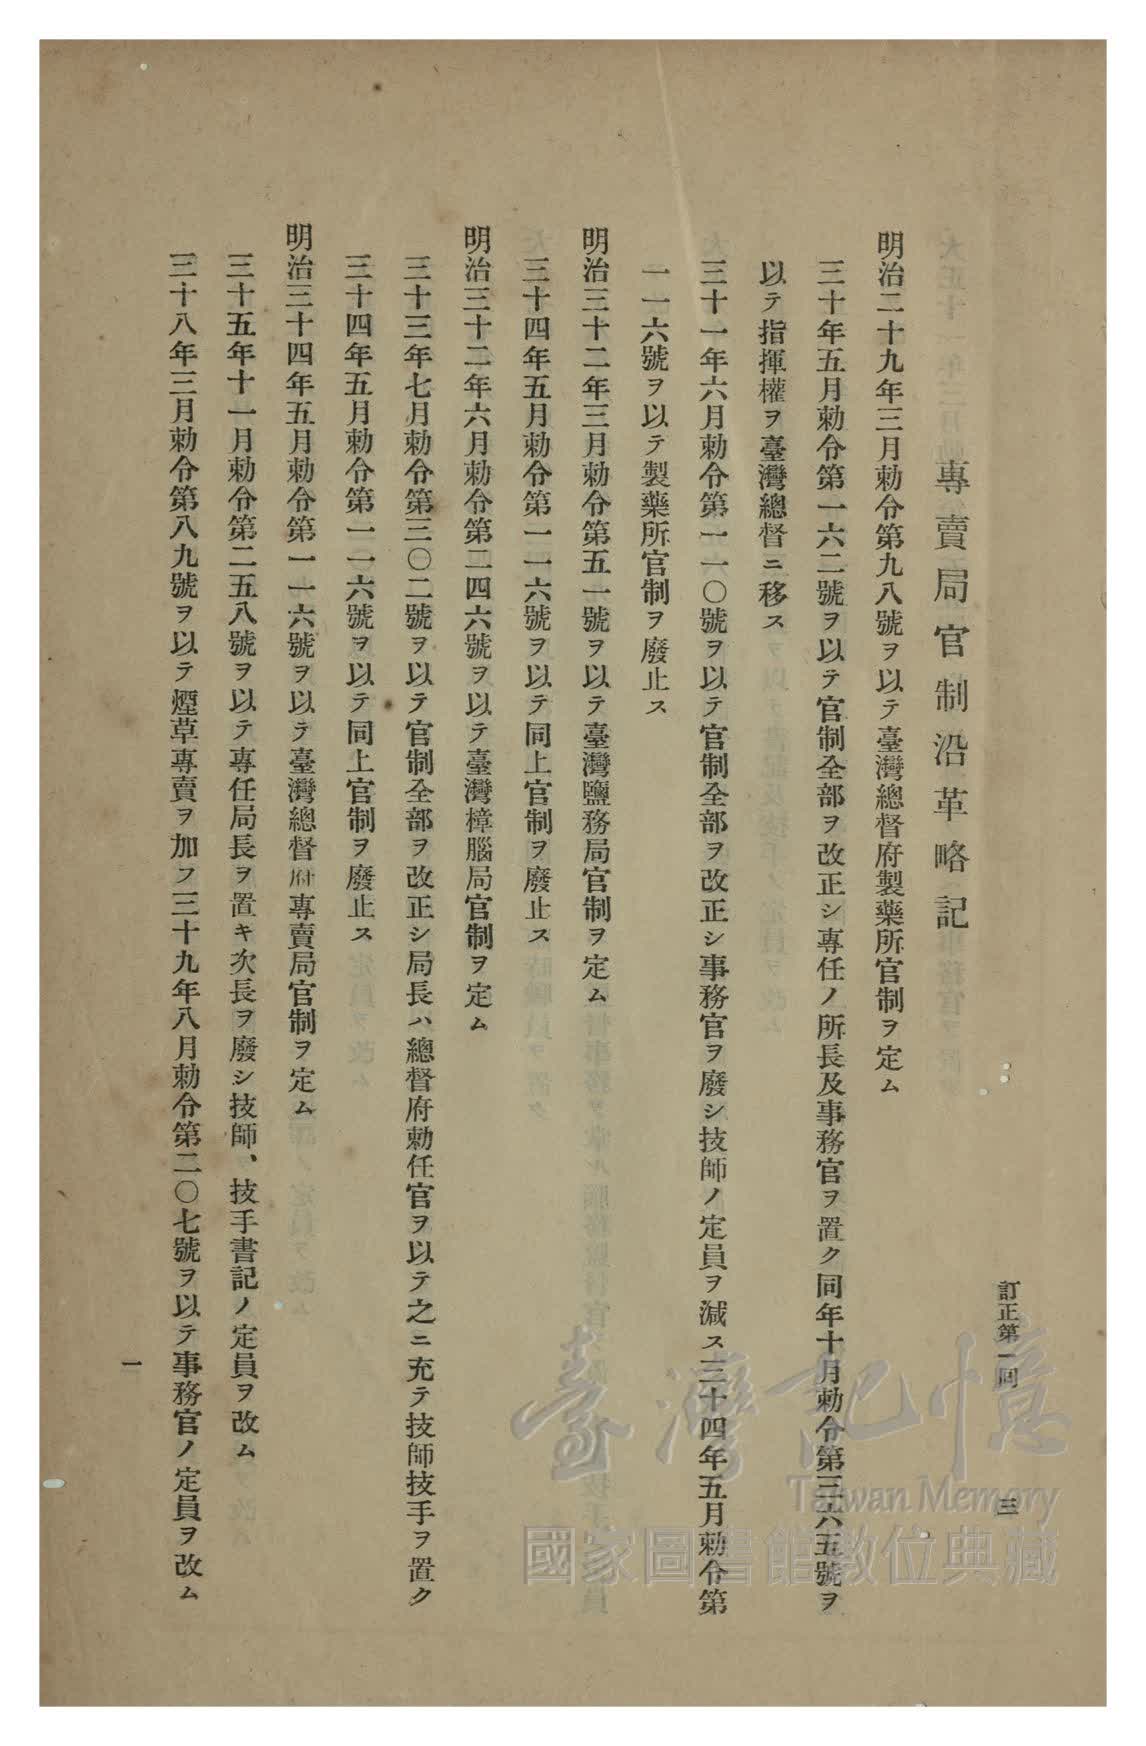 訂正第一回
三
專賣局官制沿革略記
明治二十九年三月勅令第九八號ヲ以テ臺灣總督府製藥所官制ヲ定ム
三十年五月勅令第一六二號ヲ以テ官制全部ヲ改正シ專任ノ所長及事務官ヲ置ク同年十月勅令第三六五號ヲ
以テ指揮權ヲ臺灣總督ニ移ス
三十一年六月勅令第一一〇號ヲ以テ官制全部ヲ改正シ事務官ヲ廢シ技師ノ定員ヲ減ス三十四年五月勅令第
一一六號ヲ以テ製藥所官制ヲ廢止ス
明治三十二年三月勅令第五一號ヲ以テ臺灣鹽務局官制ヲ定ム
三十四年五月勅令第一一六號ヲ以テ同上官制ヲ廢止ス
明治三十二年六月勅令第二四六號ヲ以テ臺灣樟腦局官制ヲ定ム
三十三年七月勅令第三〇二號ヲ以テ官制全部ヲ改正シ局長ハ總督府勅任官ヲ以テ之ニ充テ技師技手ヲ置ク
三十四年五月勅令第一一六號ヲ以テ同上官制ヲ廢止ス
明治三十四年五月勅令第一一六號ヲ以テ臺灣總督府專賣局官制ヲ定ム
三十五年十一月勅令第二五八號ヲ以テ專任局長ヲ置キ次長ヲ廢シ技師、技手書記ノ定員ヲ改ム
三十八年三月勅令第八九號ヲ以テ煙草專賣ヲ加フ三十九年八月勅令第二〇七號ヲ以テ事務官ノ定員ヲ改ム
一
臺灣記憶
Taiwan Memory
國家圖書館數位典藏